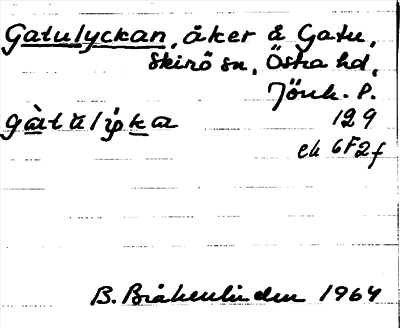 Gatulyckan, åker å Gatu,
Skirö sn, Östra hd,
Jönk. l.
gàtulyka 129
ek 6F2f
1964